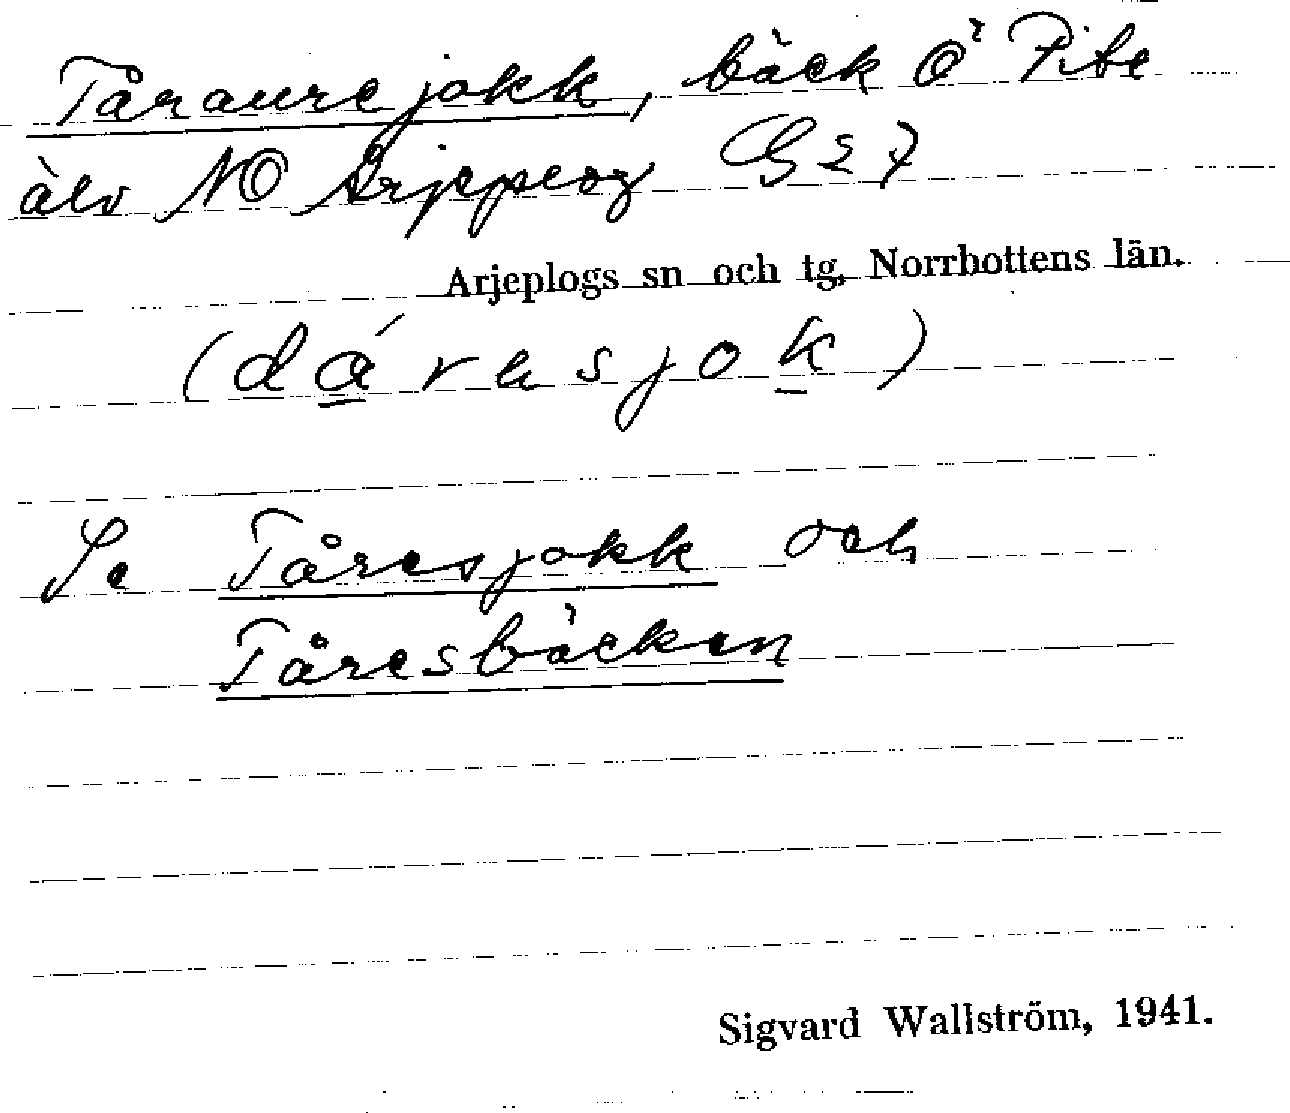 Tåraurejokk, bäck Ö Pite
älv NO Arjeplog G27
Arjeplogs sn och tg, Norrbottens län.
(dáresjok)
Se Tåresjokk och
Tåresbäcken
Sigvard Wallström, 1941.